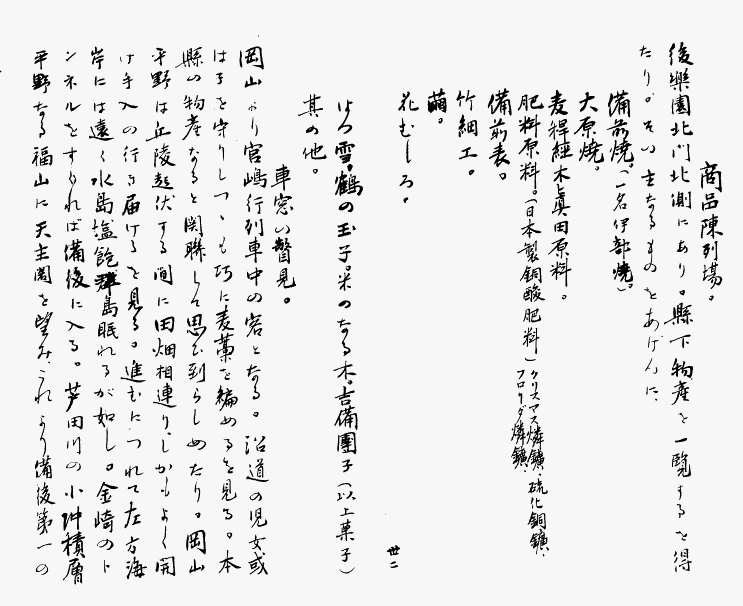 商品陳列場。
後樂園北門北側にあり。縣下物産を一覧するを得
たり。その主なるものをあげんに、
備前焼。(一名伊部焼)。
大原焼。
麦稈経木眞田原料。
肥料原料。(日本製銅酸肥料)クリスマス燐鑛、硫化銅鑛、
フロリダ燐鑛、
備前表。
竹細工。
繭。
花むしろ。
世二
はつ雪。鶴の玉子。米のなる木。吉備團子(以上菓子)
其の他。
車窓の瞥見。
岡山より宮嶋行列車中の客となる。沿道の児女或
は子を守りしつゝも巧に麦藁を編めるを見る。本
縣の物産なると関聯して思ひ到らしめたり。岡山
平野は丘陵起伏する間に田畑相連り、しかもよく開
け手入の行き届けるを見る。進むにつれて左方海
岸には遠く水島塩飽群島眠れるが如し。金崎のト
ンネルをすぐれば備後に入る。芦田川の小沖積層
平野なる福山に天主閣を望み、これより備後第一の